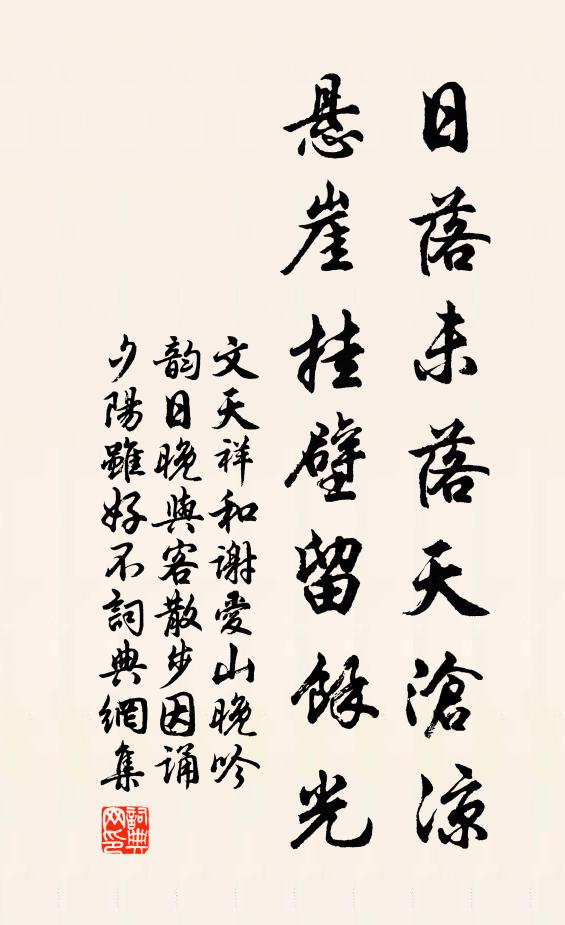 日落未落天滄涼
悬崖挂壁留餘光
文天祥和谢爱山晚吟
韵日晚與客散步因诵
夕陽雖好不詞典網集
詞典網印